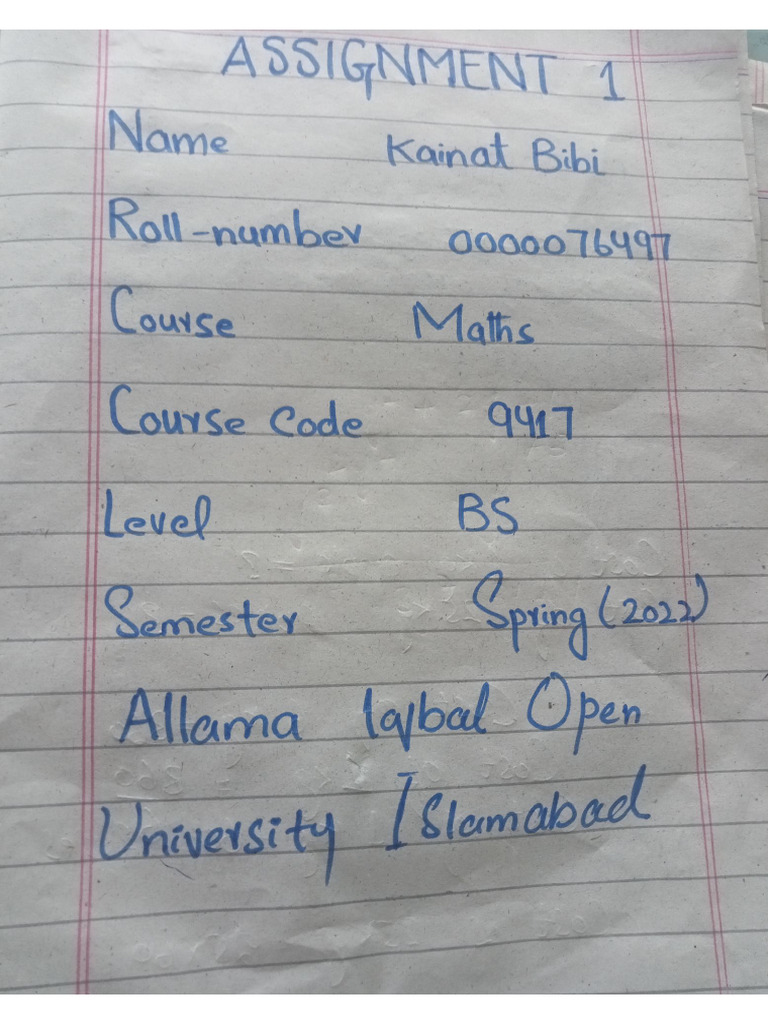 ASSIGNMENT 1
Name Kainat Bibi
Roll-number 0000076497
Course Maths
Course Code 9417
Level BS
Semester Spring (2022)
Allama Iqbal Open
University Islamabad